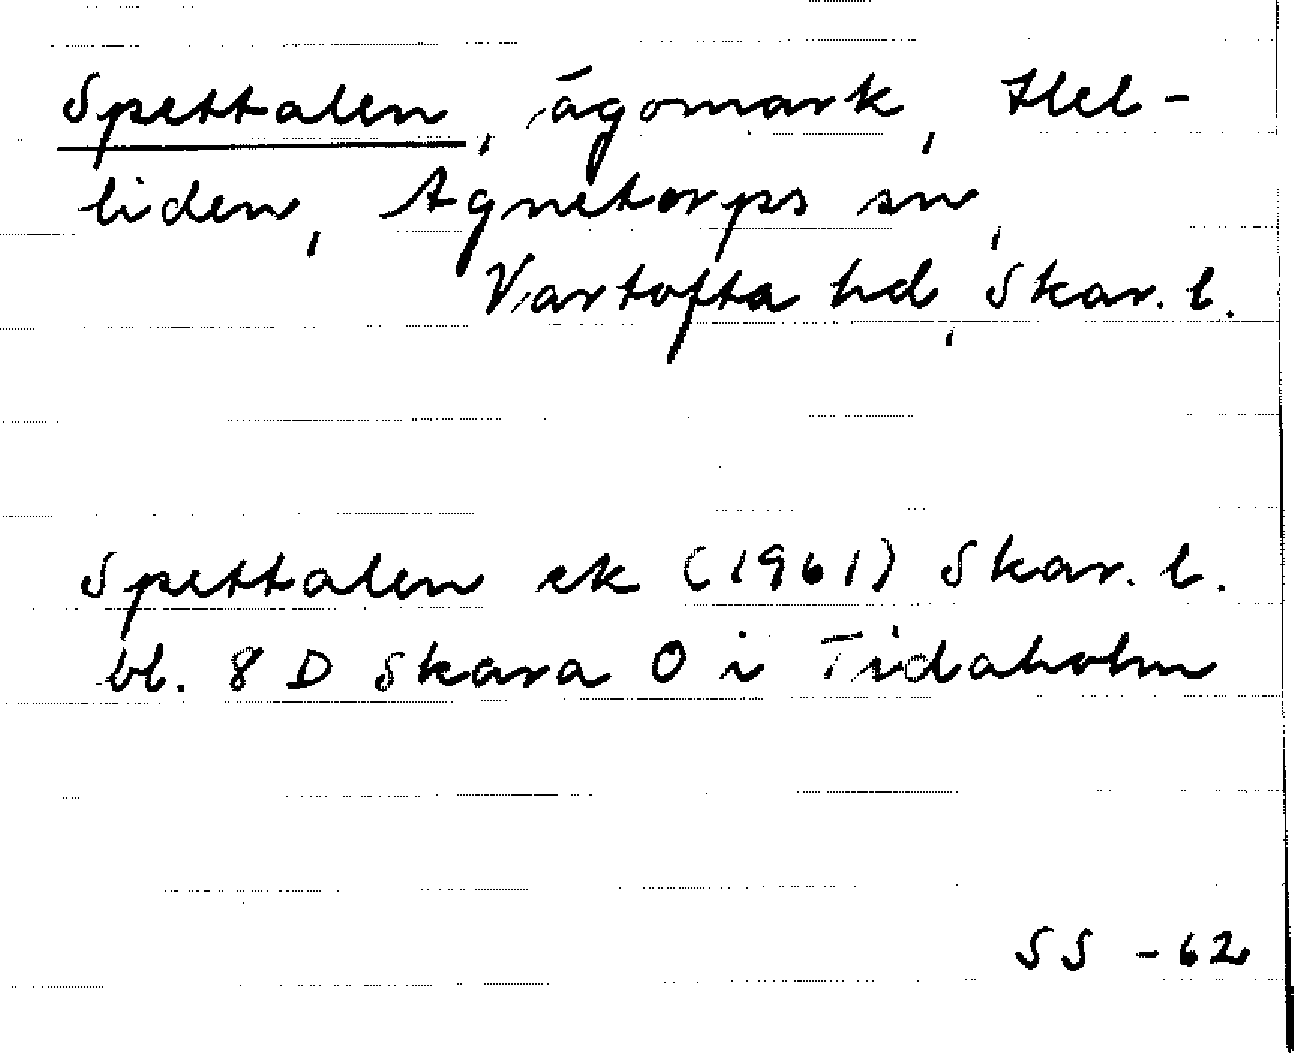 Spettalen, ägomark, Hel-
liden, Agnetorps sn,
Vartofta hd, Skar. l.
Spettalen ek (1961) Skar. l.
bl. 8 D Skara O i Tidaholm
SS -62